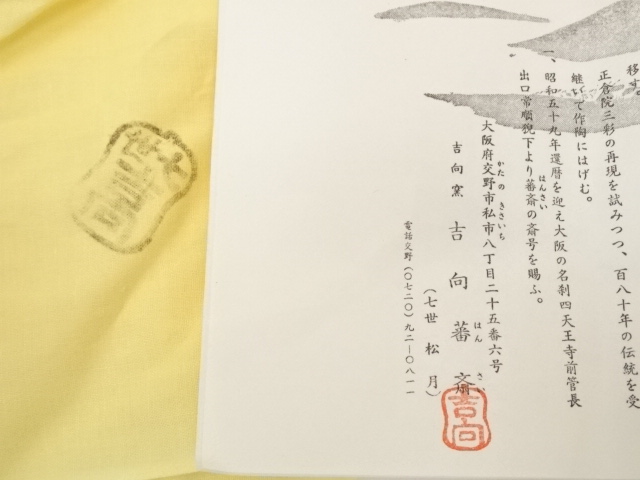 移す。
正倉院三彩の再現を試みつつ、百八十年の伝統を受
継いで作陶にはげむ。
一、昭和五十九年還暦を迎え大阪の名刹四天王寺前管長
出口常順猊下より蕃斎の斎号を賜ふ。
はんさい
大阪府交野市私市八丁目二十五番六号
かたの きさいち
吉向窯 吉向蕃斎
はん さい
(七世 松月)
電話交野(〇七二〇)九二―〇八一一
吉向